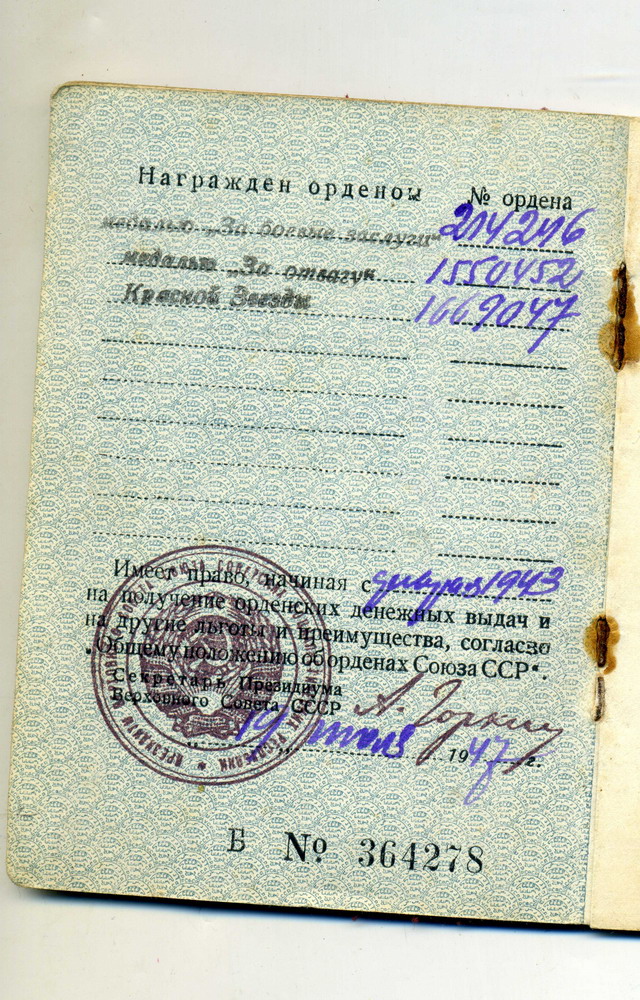 Награжден орденом № ордена
медалью „За боевые заслуги“ 214246
медалью „За отвагу“ 1550452
Красной Звезды 1669047
Имеет право, начиная с января 1943
на получение орденских денежных выдач и
на другие льготы и преимущества, согласно
„Общему положению об орденах Союза ССР“.
Секретарь Президиума
Верховного Совета СССР А. Горкин
19 июля 1947 г.
Б № 364278